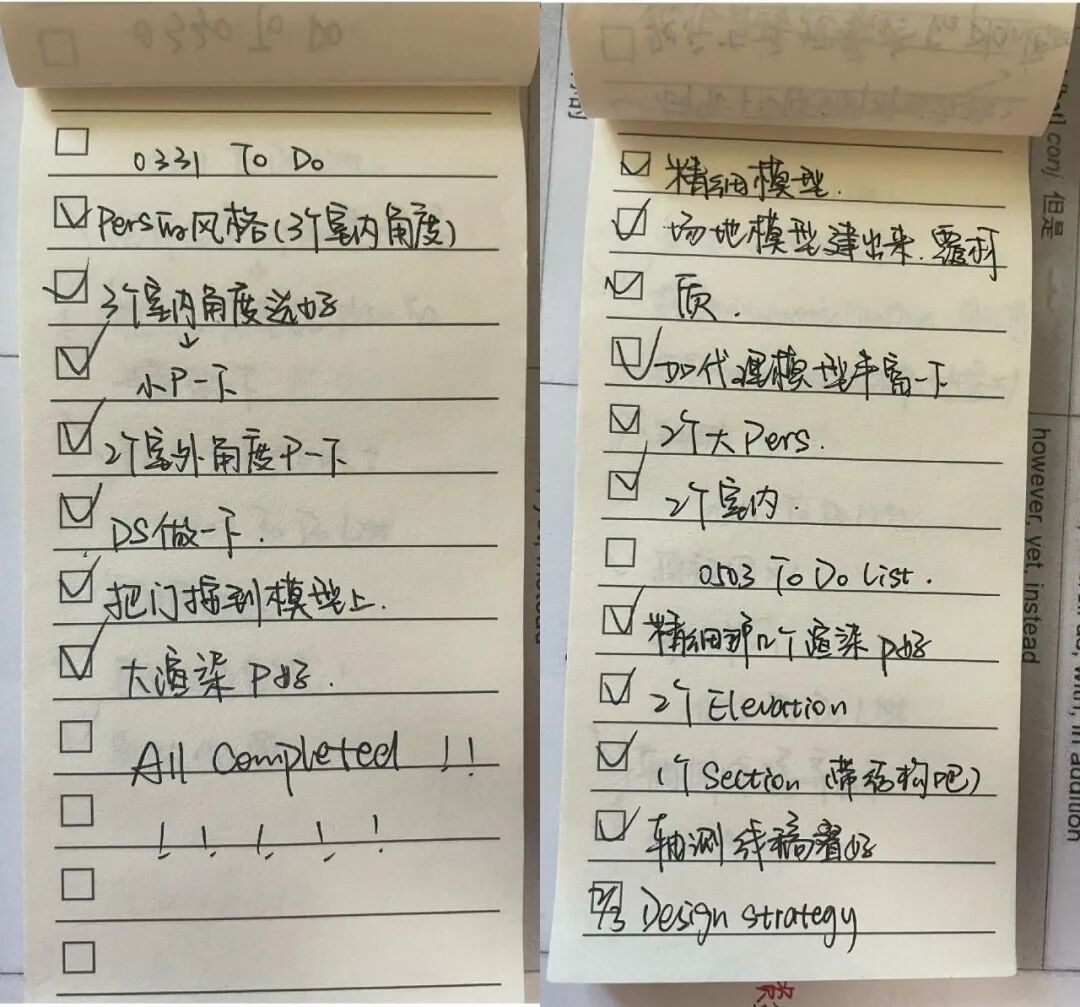 0331 To Do
Pers 风格(3个室内角度)
3个室内角度选好
↓
小P一下
2个室外角度P一下
DS做一下.
把门搞到模型上.
大渲染P好.
All Completed !!
! ! ! ! !
精细模型.
场地模型建出来.覆材
质.
加代理模型丰富一下
2个大Pers.
2个室内.
0503 To Do List.
精细那几个渲染P好
2个Elevation
1个Section (带结构吧)
轴测线稿 好
2/3 Design strategy
however, yet, instead
conj. 但是
in addition